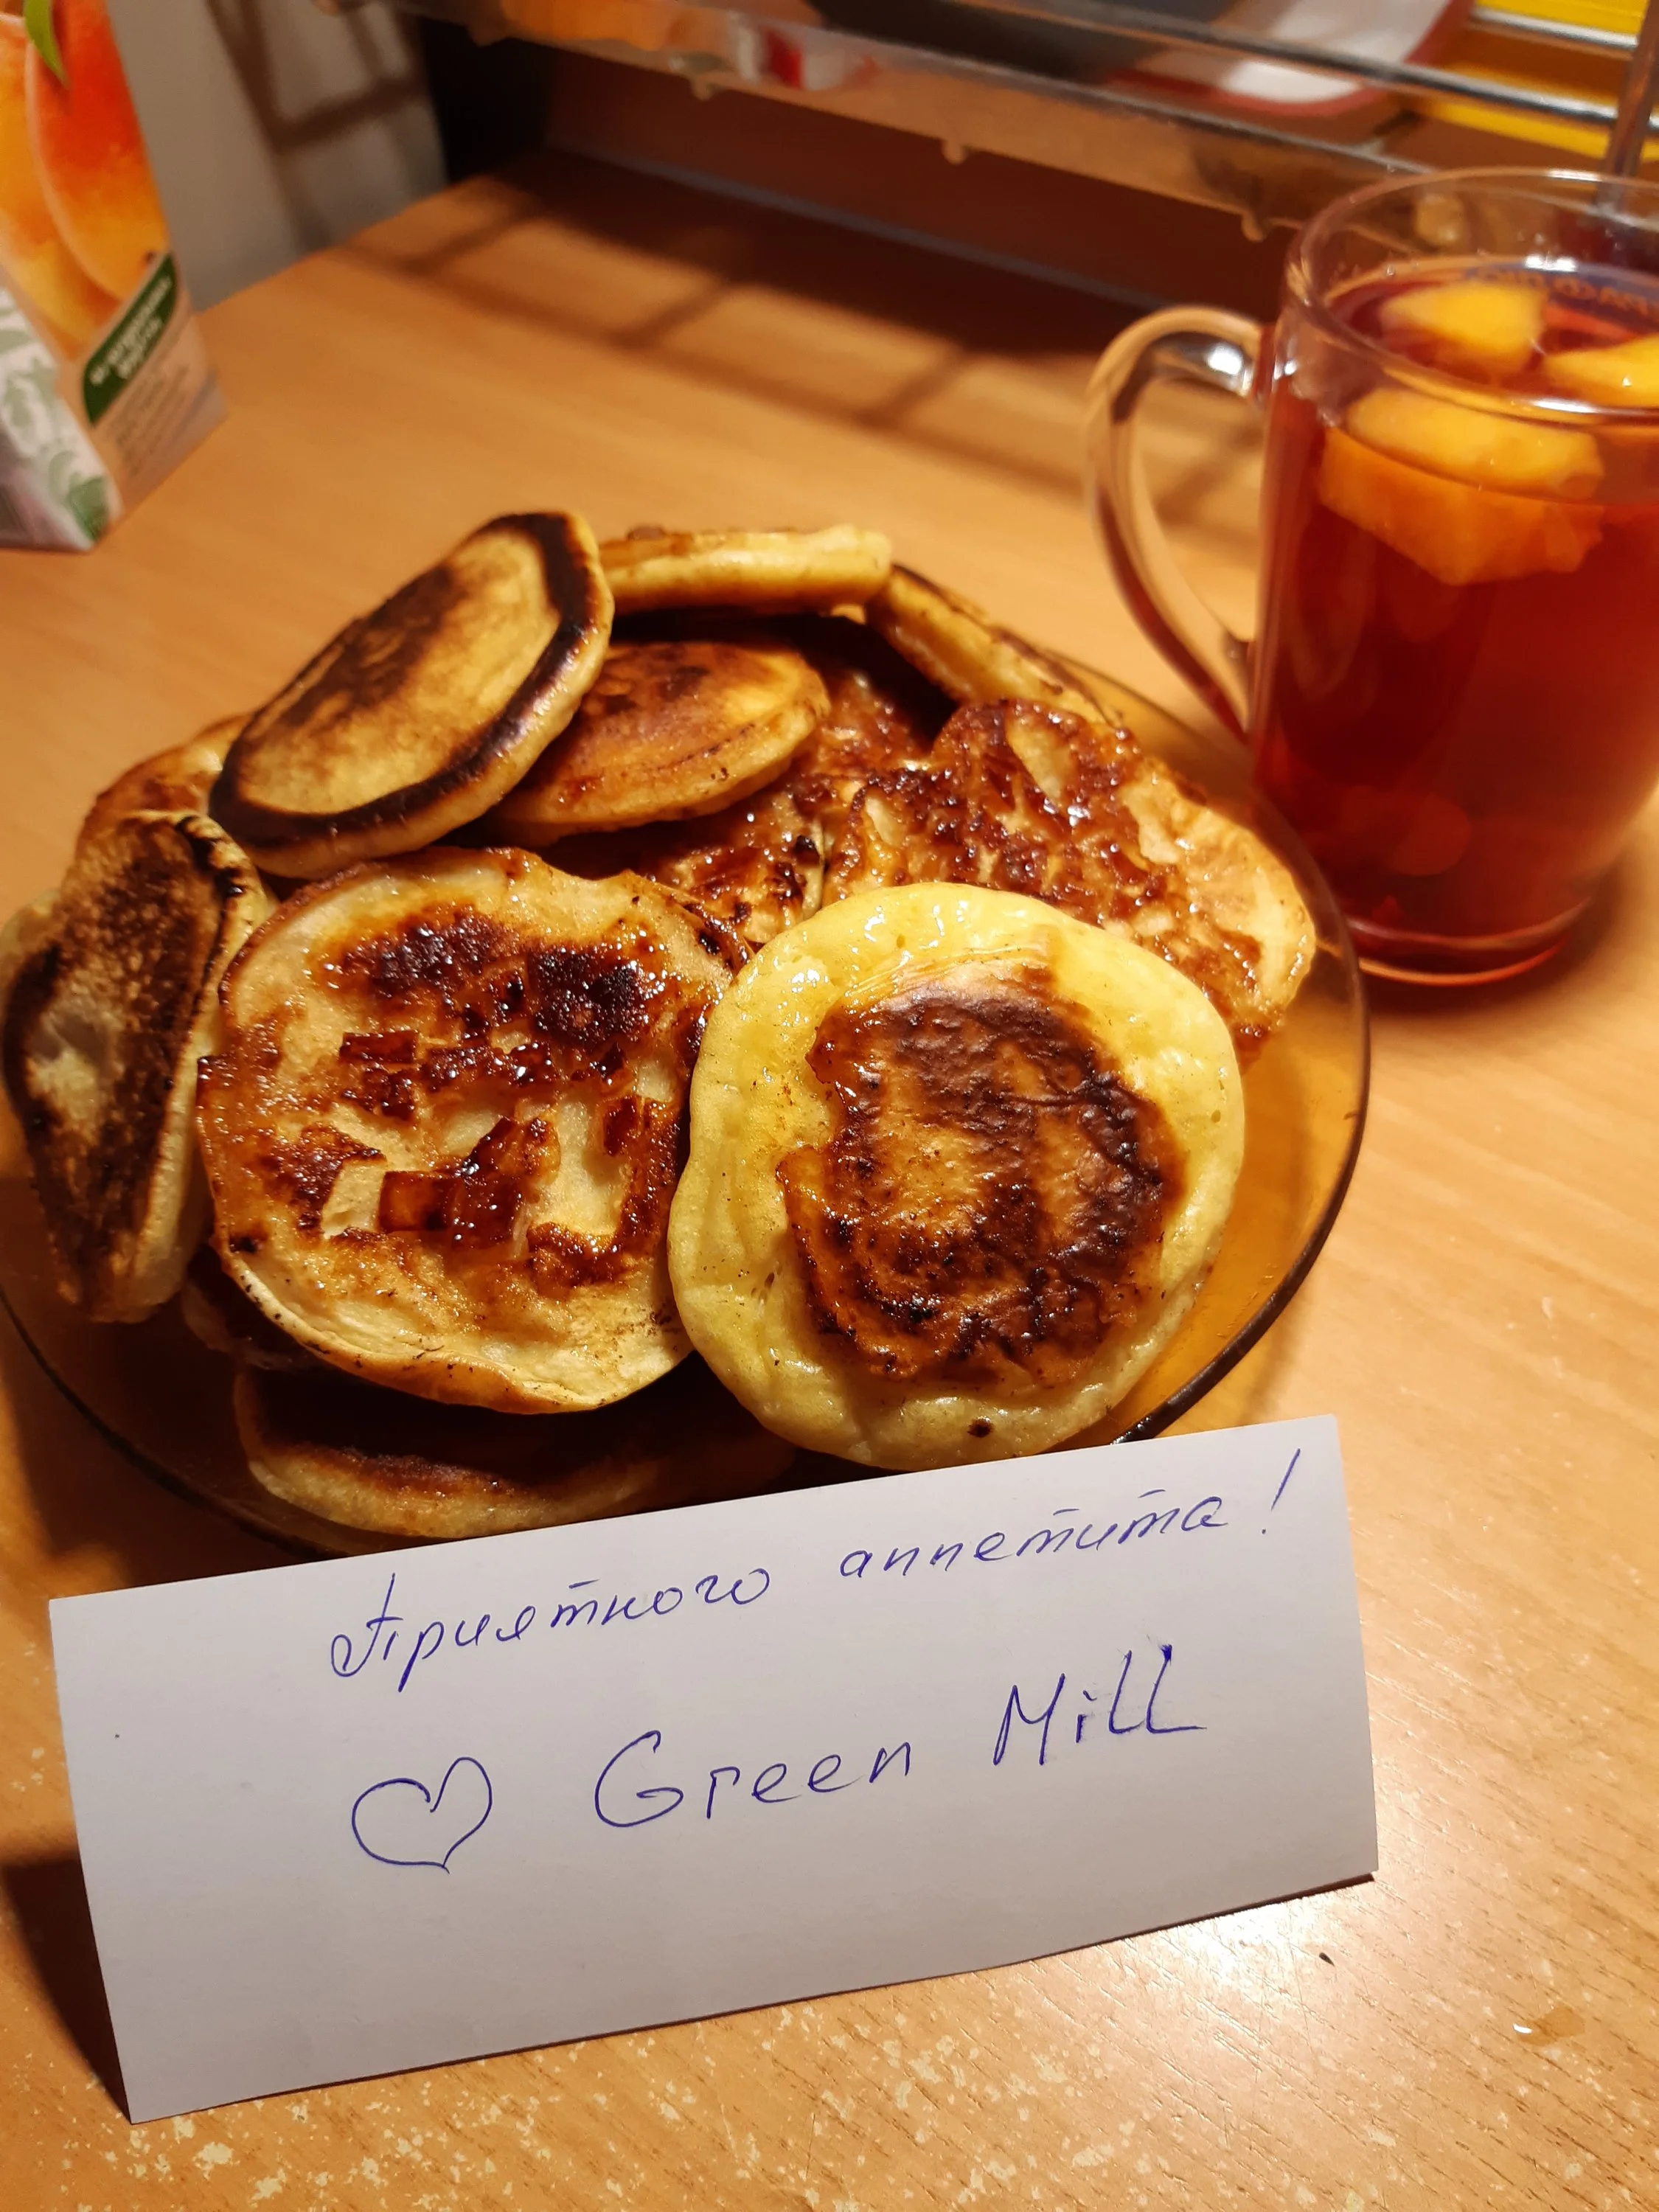 Приятного аппетита!
♡ Green Mill